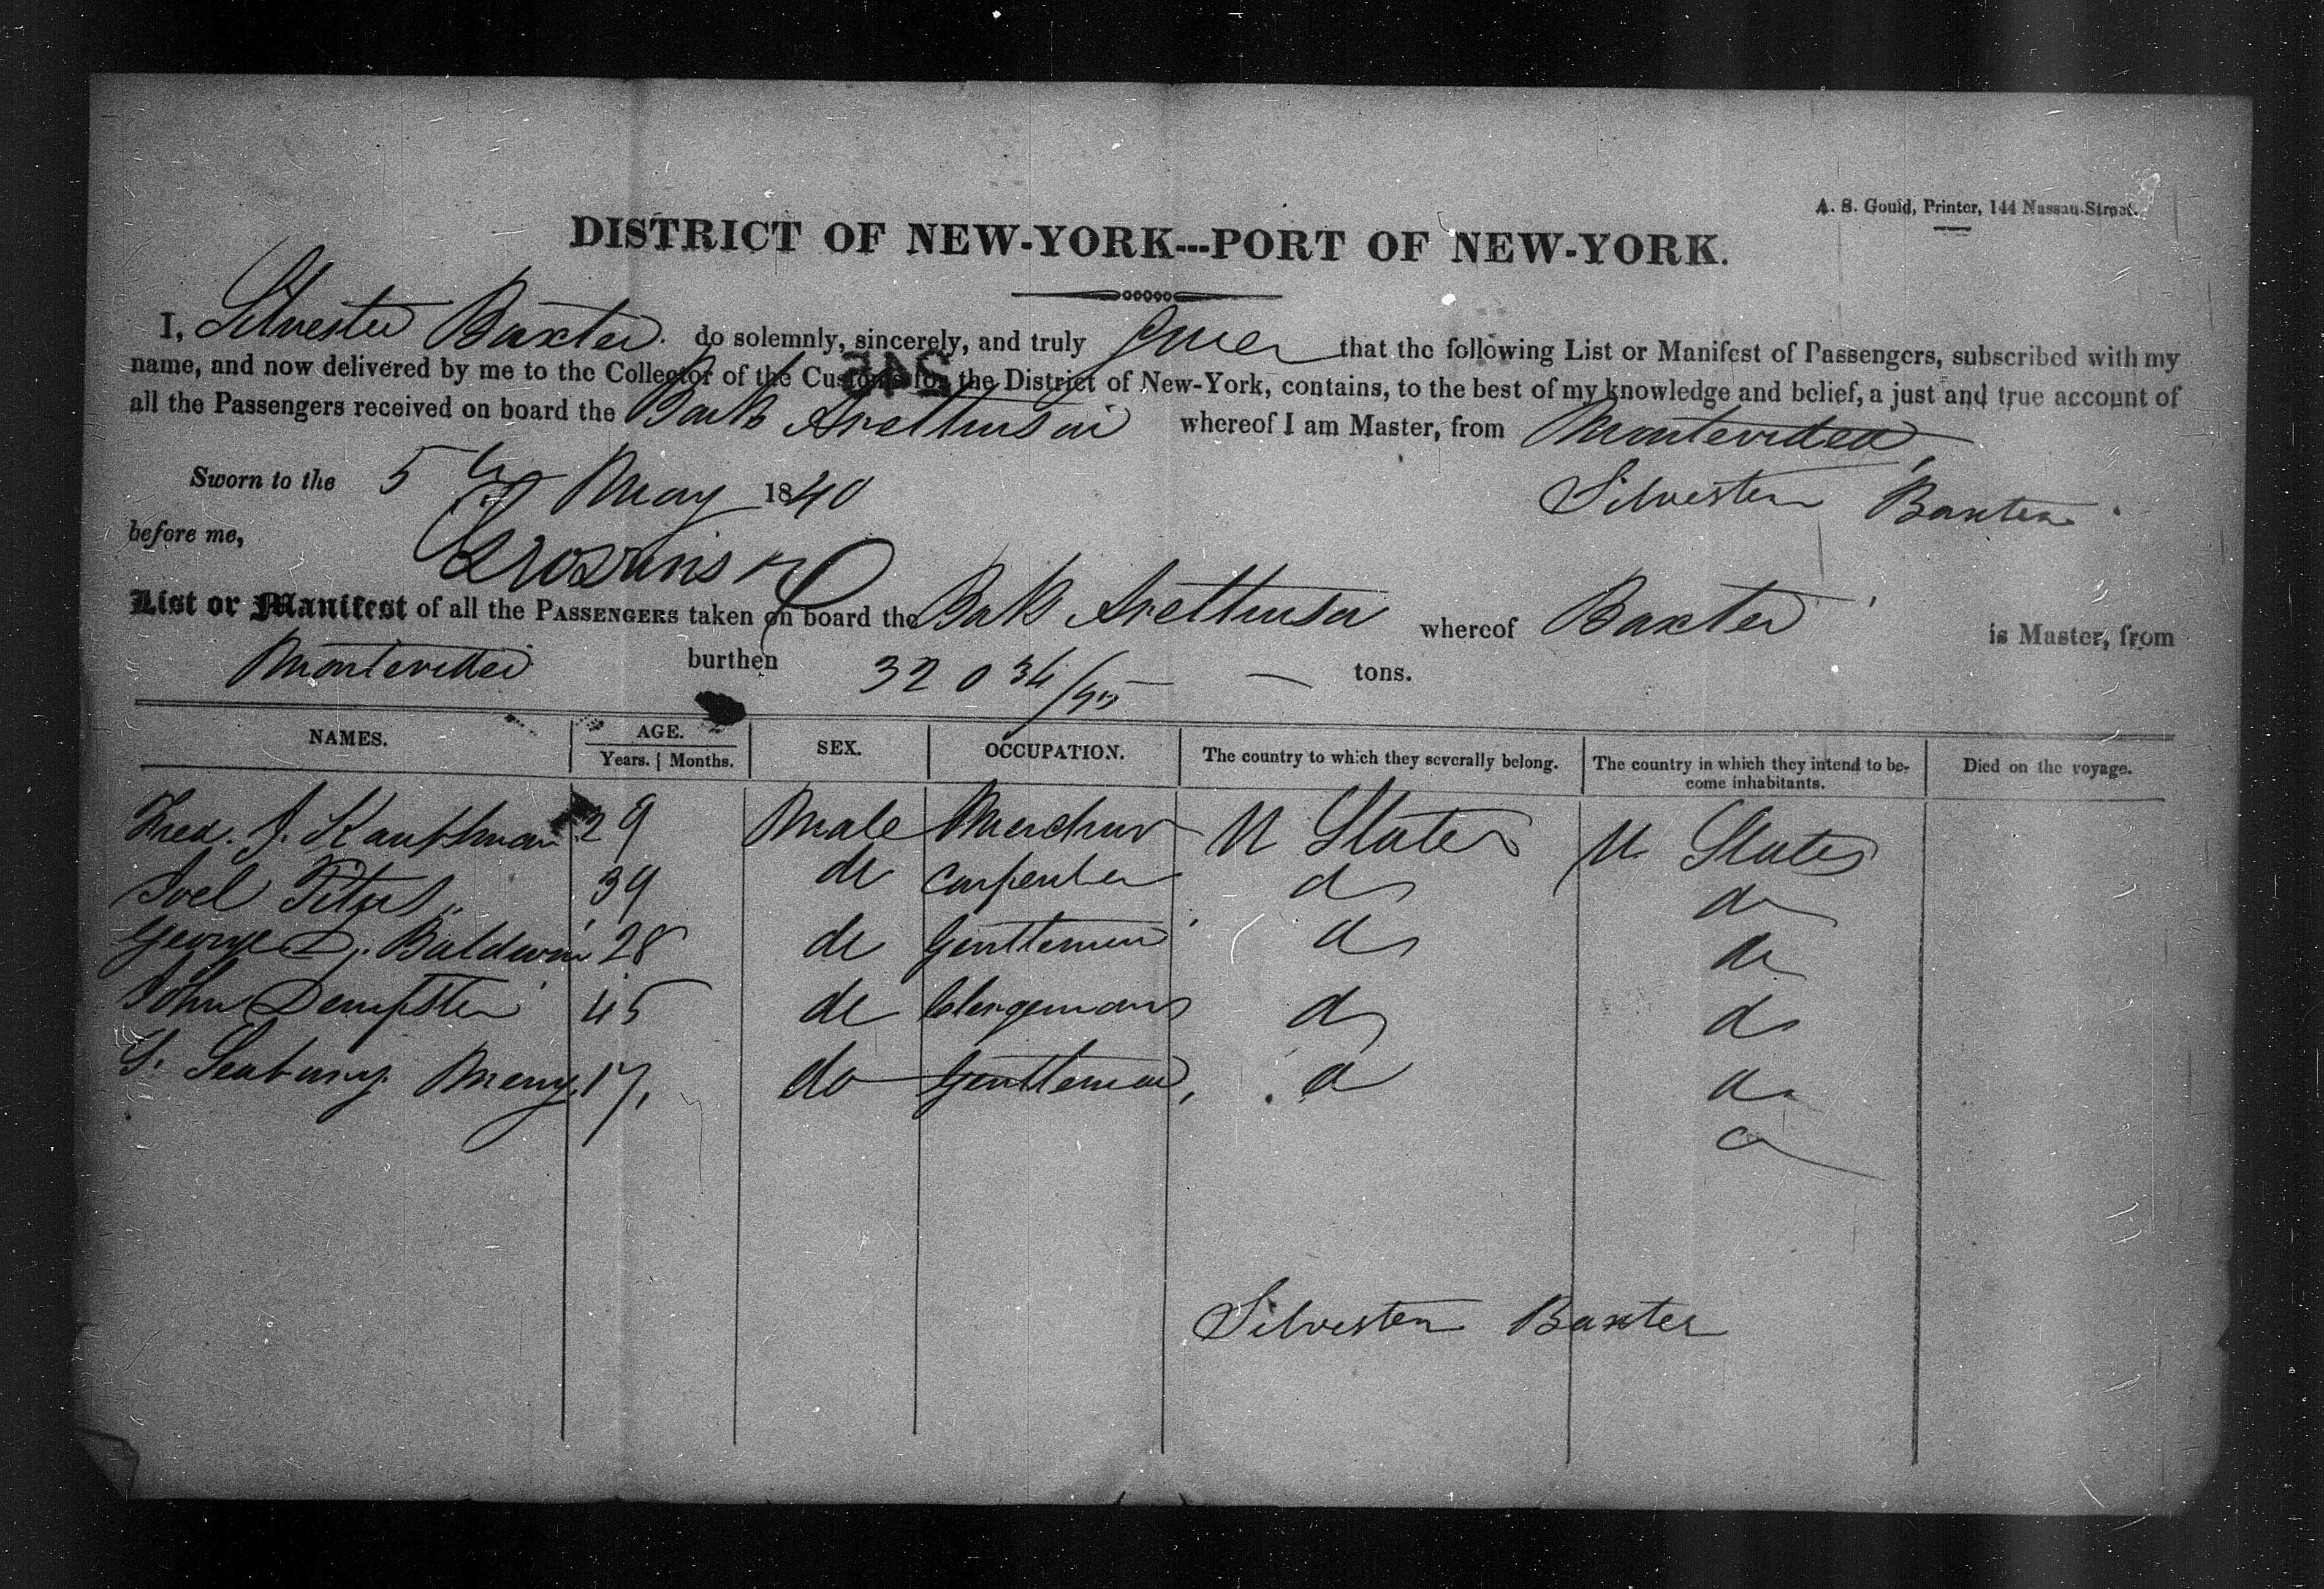 A. S. Gould, Printer, 144 Nassau-Street.
DISTRICT OF NEW-YORK---PORT OF NEW-YORK.
I, Silvester Baxter do solemnly, sincerely, and truly swear that the following List or Manifest of Passengers, subscribed with my
name, and now delivered by me to the Collector of the Customs for the District of New-York, contains, to the best of my knowledge and belief, a just and true account of
all the Passengers received on board the Bark Arethusa whereof I am Master, from Montevideo
Sworn to the 5th May 1840 Silvester Baxter
before me,
List or Manifest of all the PASSENGERS taken on board the Bark Arethusa whereof Baxter is Master, from
Montevideo burthen 320 34/95 tons.
NAMES. AGE. SEX. OCCUPATION. The country to which they severally belong. The country in which they intend to be- Died on the voyage.
Years. Months. come inhabitants.
Fred. J. Kauffman 29 Male Merchant U States U States
Joel Titus 39 do Carpenter do do
George D. Baldwin 28 do Gentleman do do
John Dempster 45 do Clergeman do do
S. Seabury Merry 17, do Gentleman, do do
do
Silvester Baxter